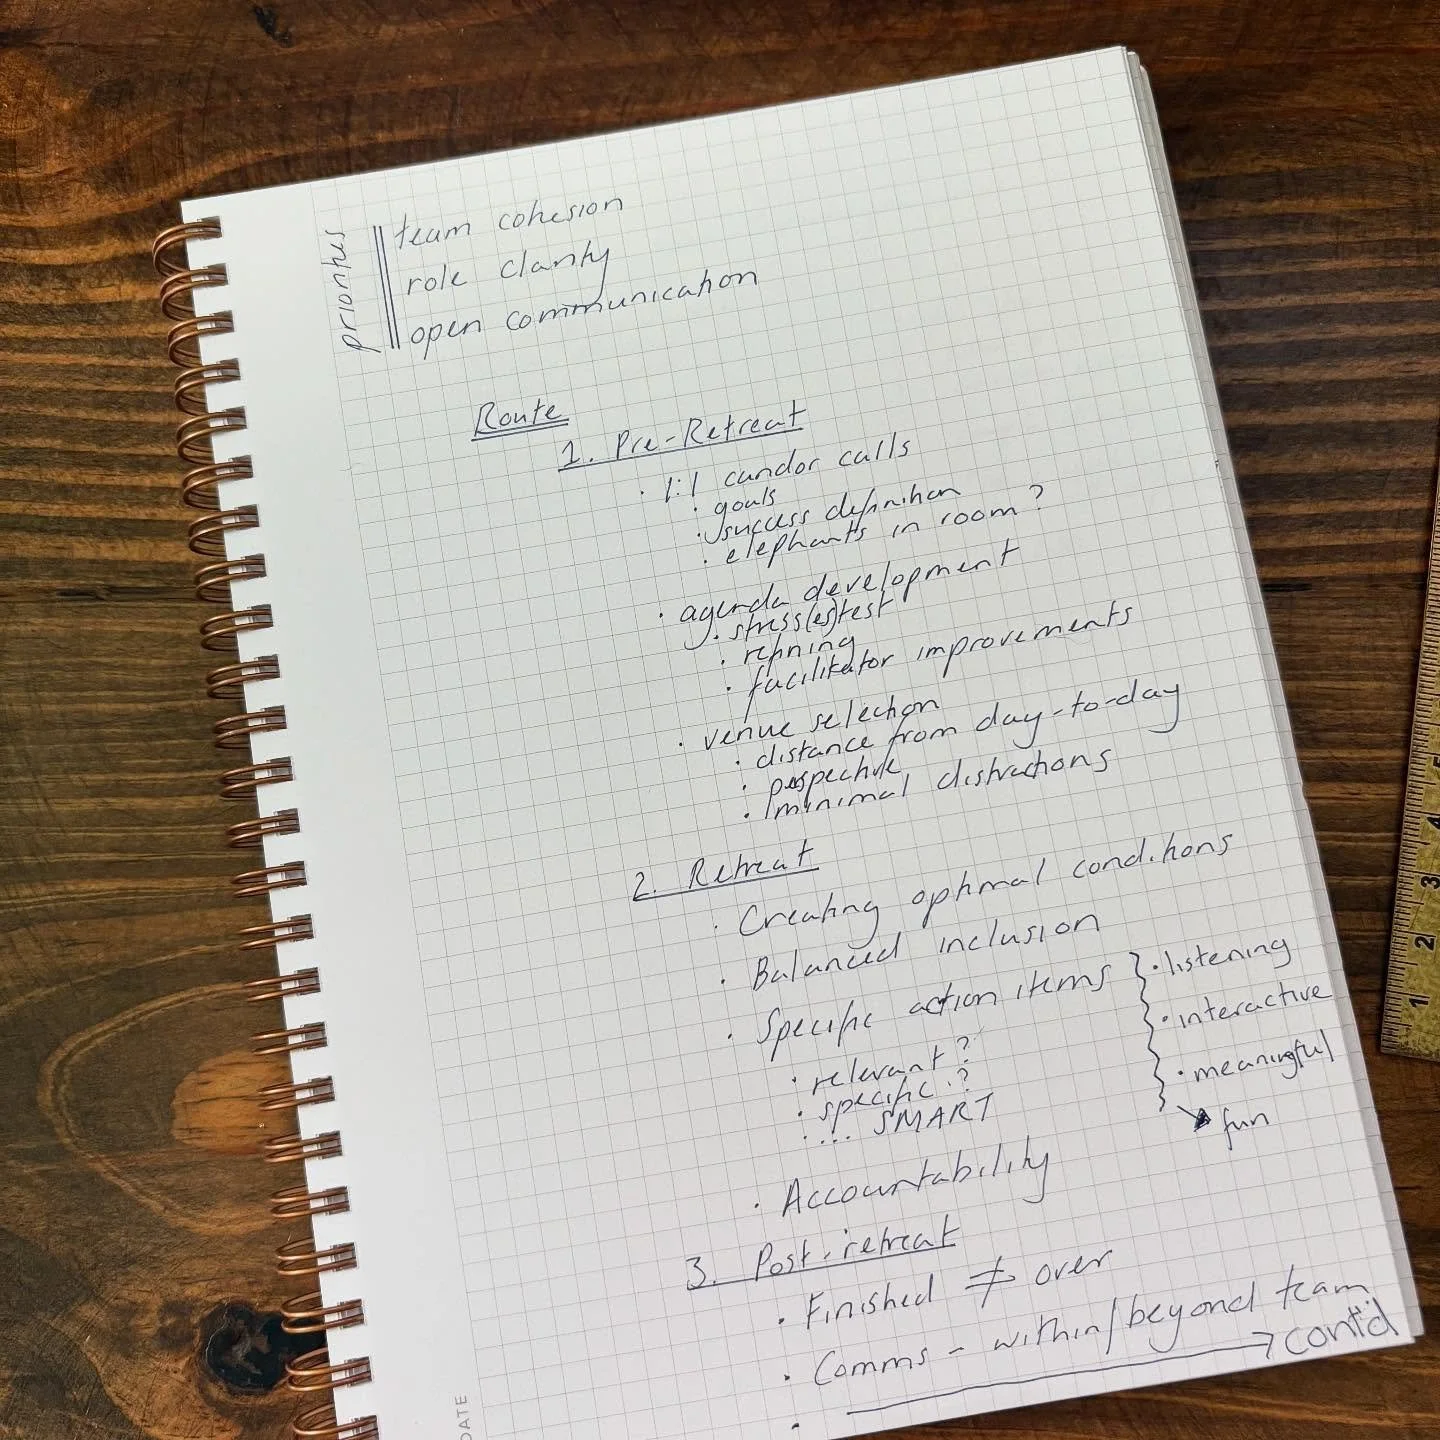 priorities
team cohesion
role clarity
open communication
Route
1. Pre-Retreat
· 1:1 candor calls
· goals
· success definition
· elephants in room?
· agenda development
· stress(es) test
· refining
· facilitator improvements
· venue selection
· distance from day-to-day
· perspective
· minimal distractions
2. Retreat
· Creating optimal conditions
· Balanced inclusion
· Specific action items
· relevant?
· specific?
· ... SMART
· listening
· interactive
· meaningful
fun
· Accountability
3. Post-retreat
· Finished ≠ over
· Comms - within/beyond team
→ cont'd
DATE
1
2
3
4